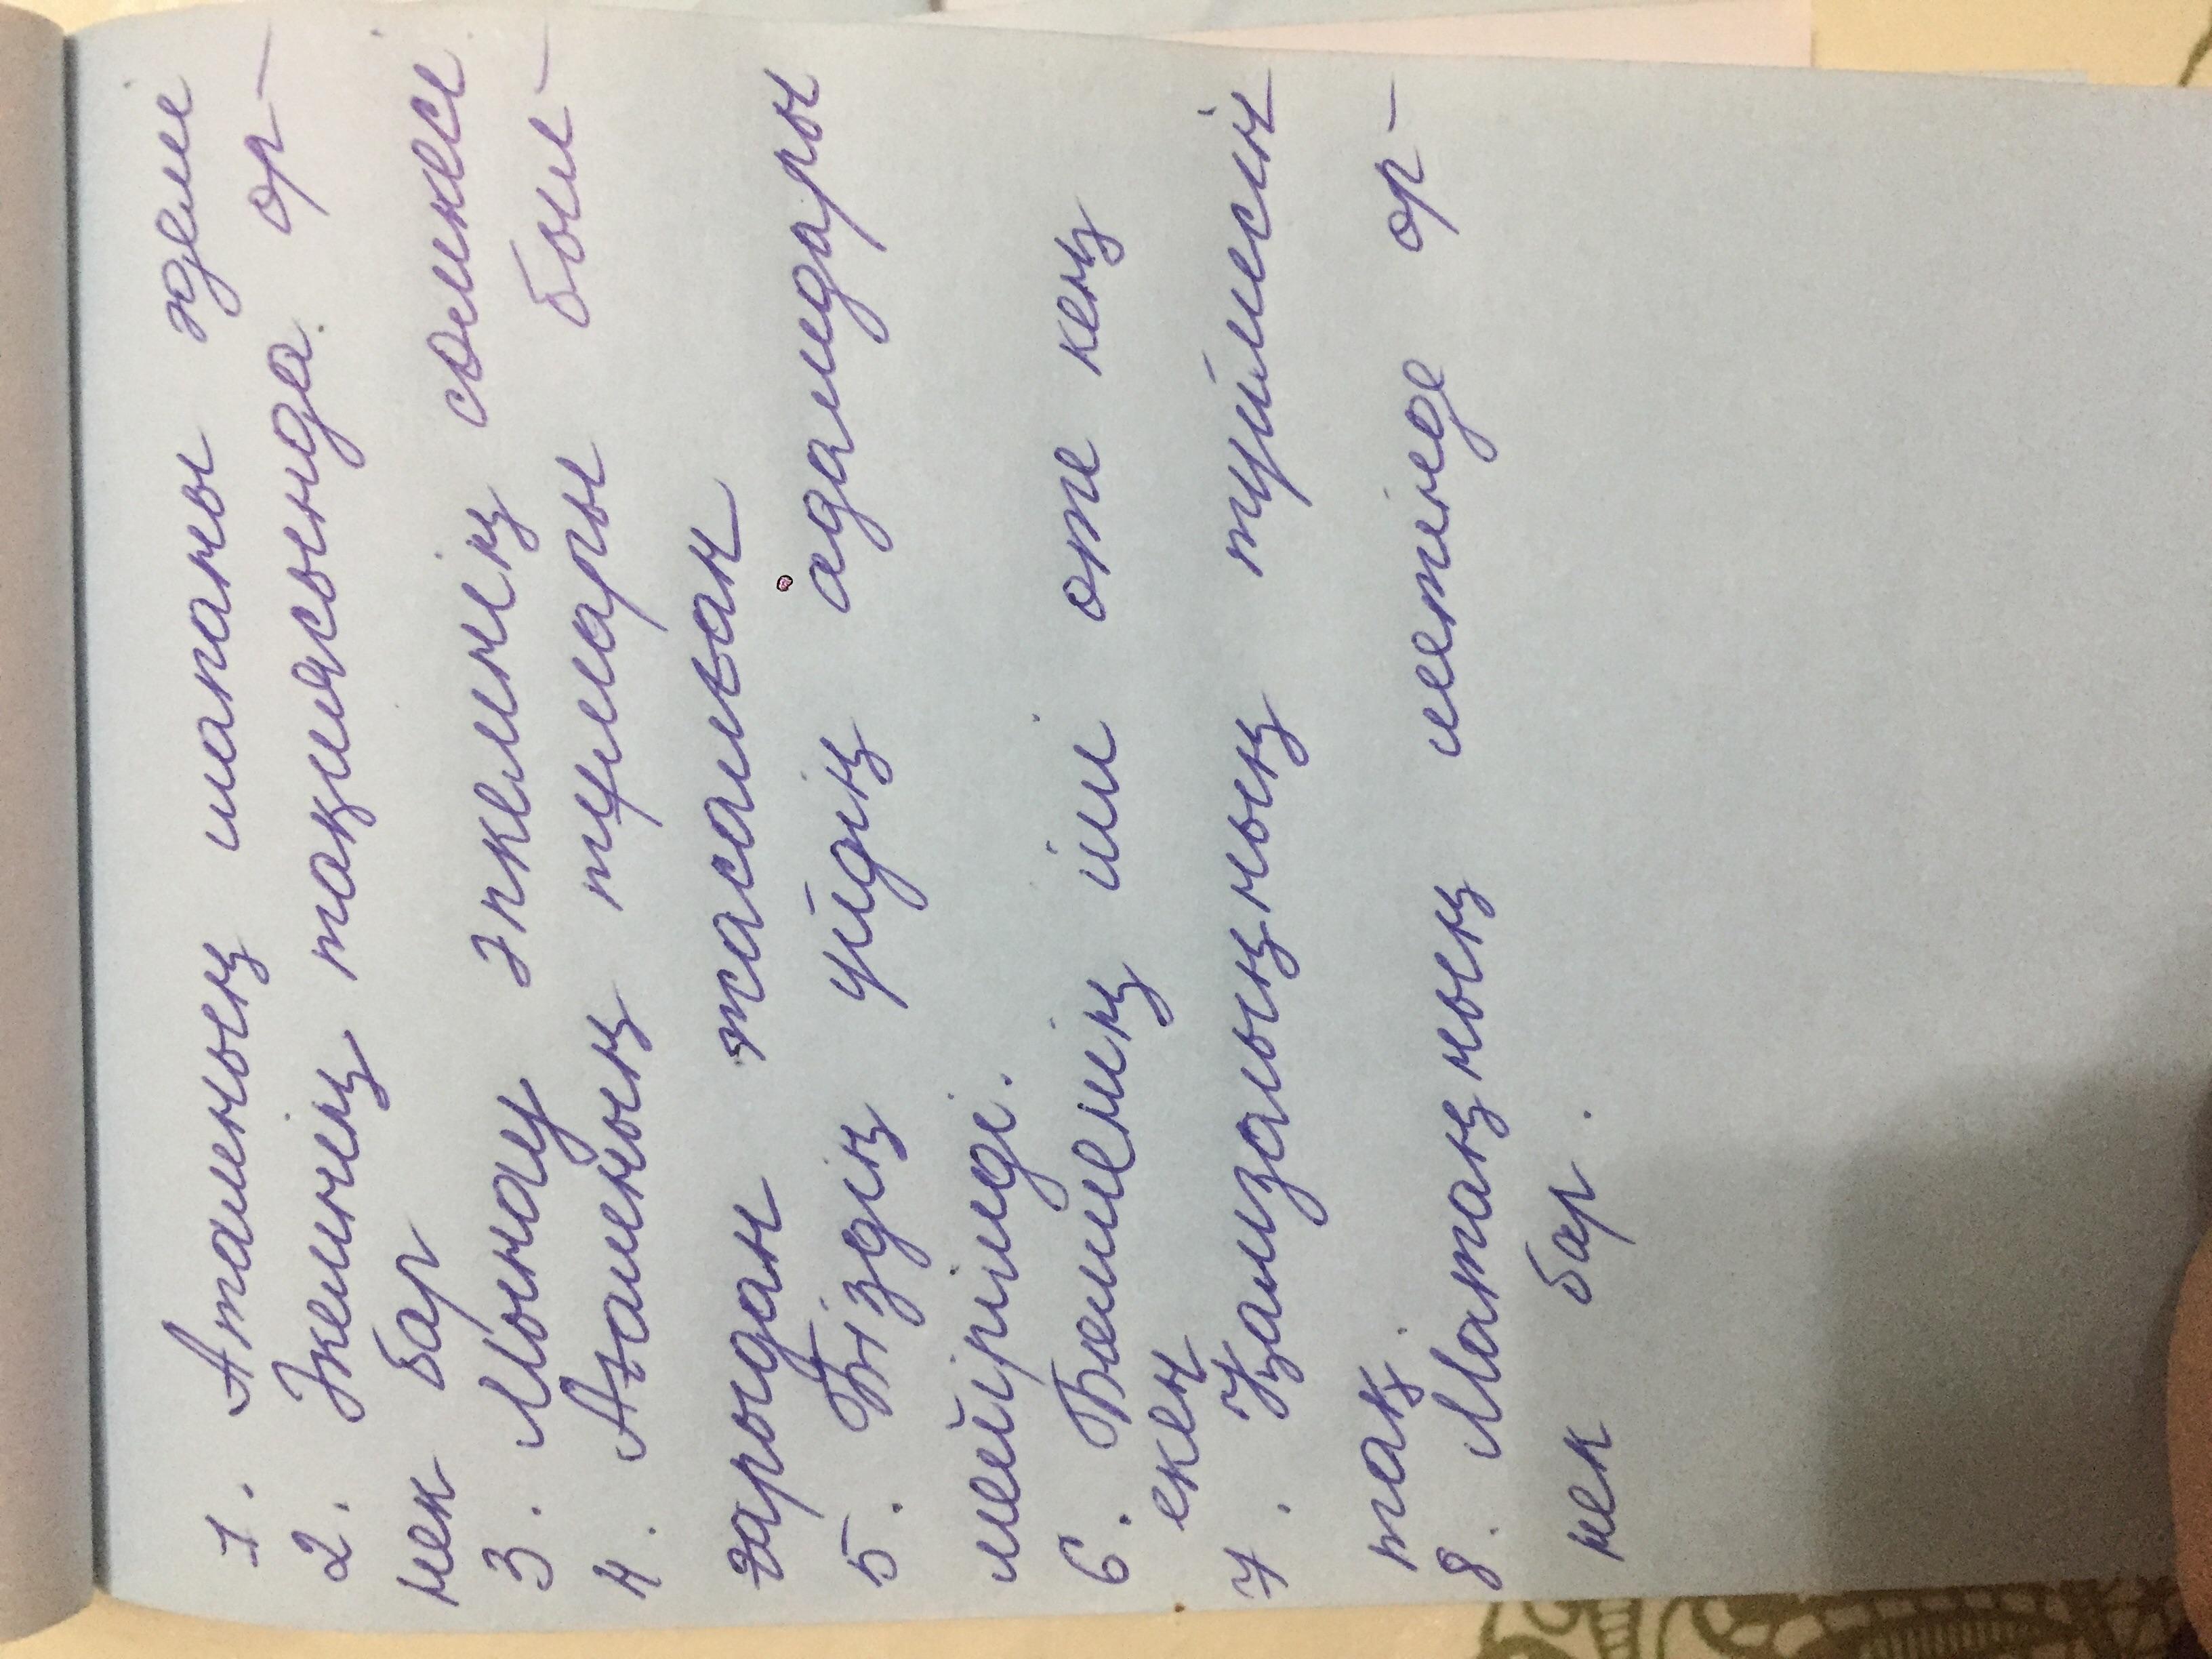 1. Атамның шапаны әдемі
2. Әжемнің тақиясында ор-
нек бар
3. Мынау әпкемнің сөмкесі
4. Апамның тұмары был-
ғарыдан жасалған
5. Біздің үйдің адамдары
мейірімді.
6. Бөлменің іші өте кең
екен
7. Қамзалыңның түймесін
тақ.
8. Матаңның шетінде ор-
нек бар.